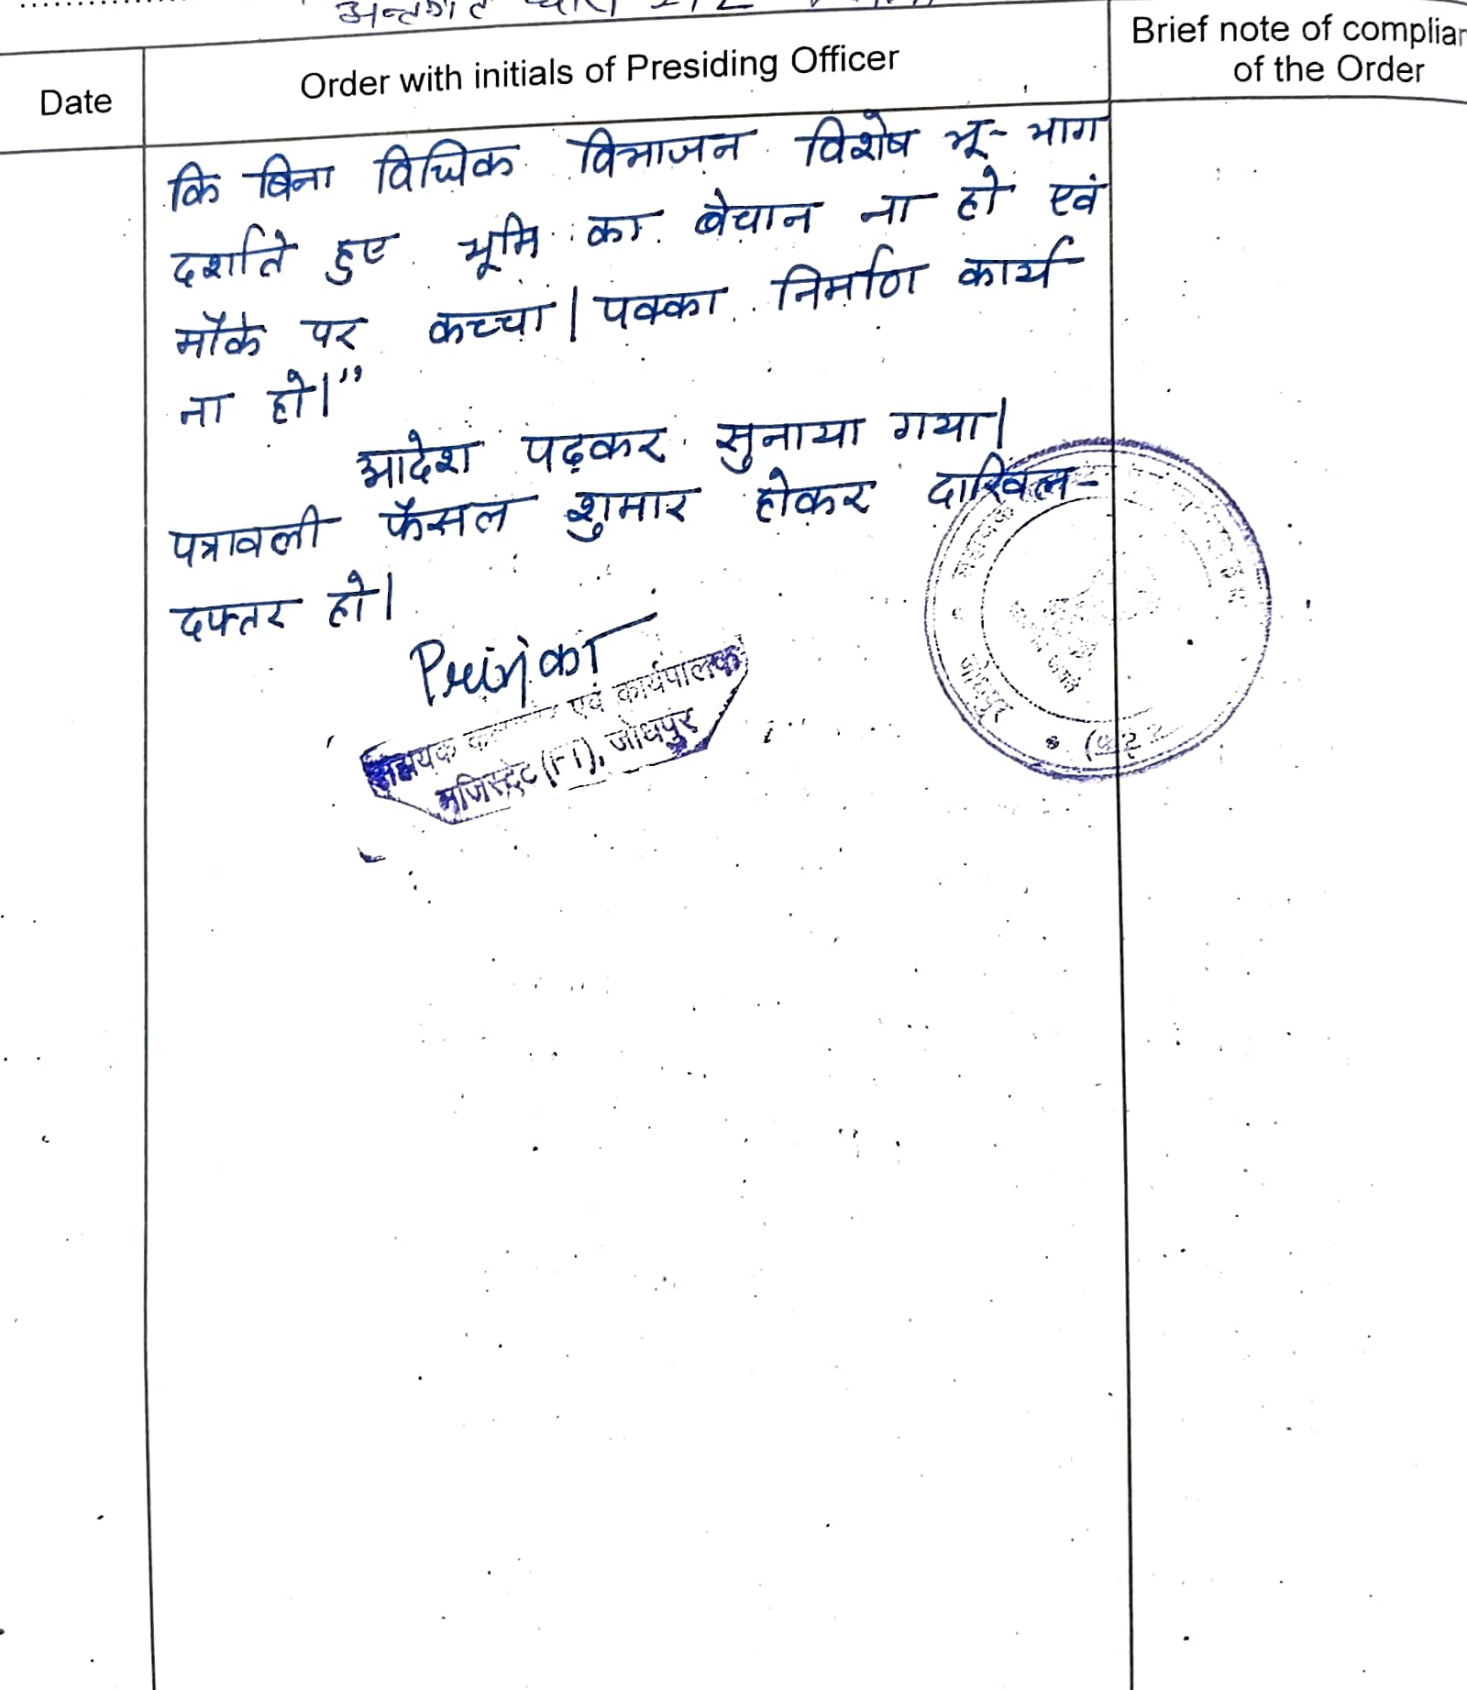 अन्तर्गत धारा 212
Date
Order with initials of Presiding Officer
Brief note of complian
of the Order
कि बिना विधिक विभाजन विशेष भू-भाग
दर्शाते हुए भूमि का बेचान ना हो एवं
मौके पर कच्चा/पक्का निर्माण कार्य
ना हो।"
आदेश पढ़कर सुनाया गया।
पत्रावली फैसल शुमार होकर दाखिल-
दफ्तर हो।
Priyanka
सहायक एवं कार्यपालक
मजिस्ट्रेट (FT), जोधपुर
जोधपुर